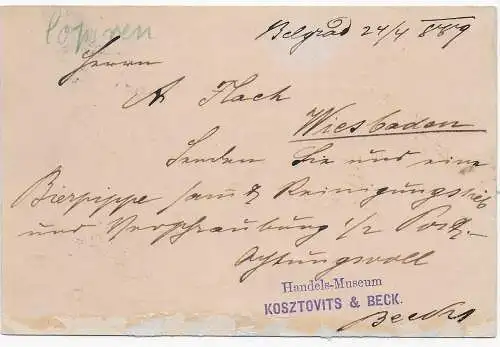 Copiren
Belgrad 24/4 889
Herrn
A Flach
Wiesbaden
Senden Sie uns eine
Bierpippe samt Reinigungs
und Verschraubung
Achtungsvoll
Handels-Museum
KOSZTOVITS & BECK.